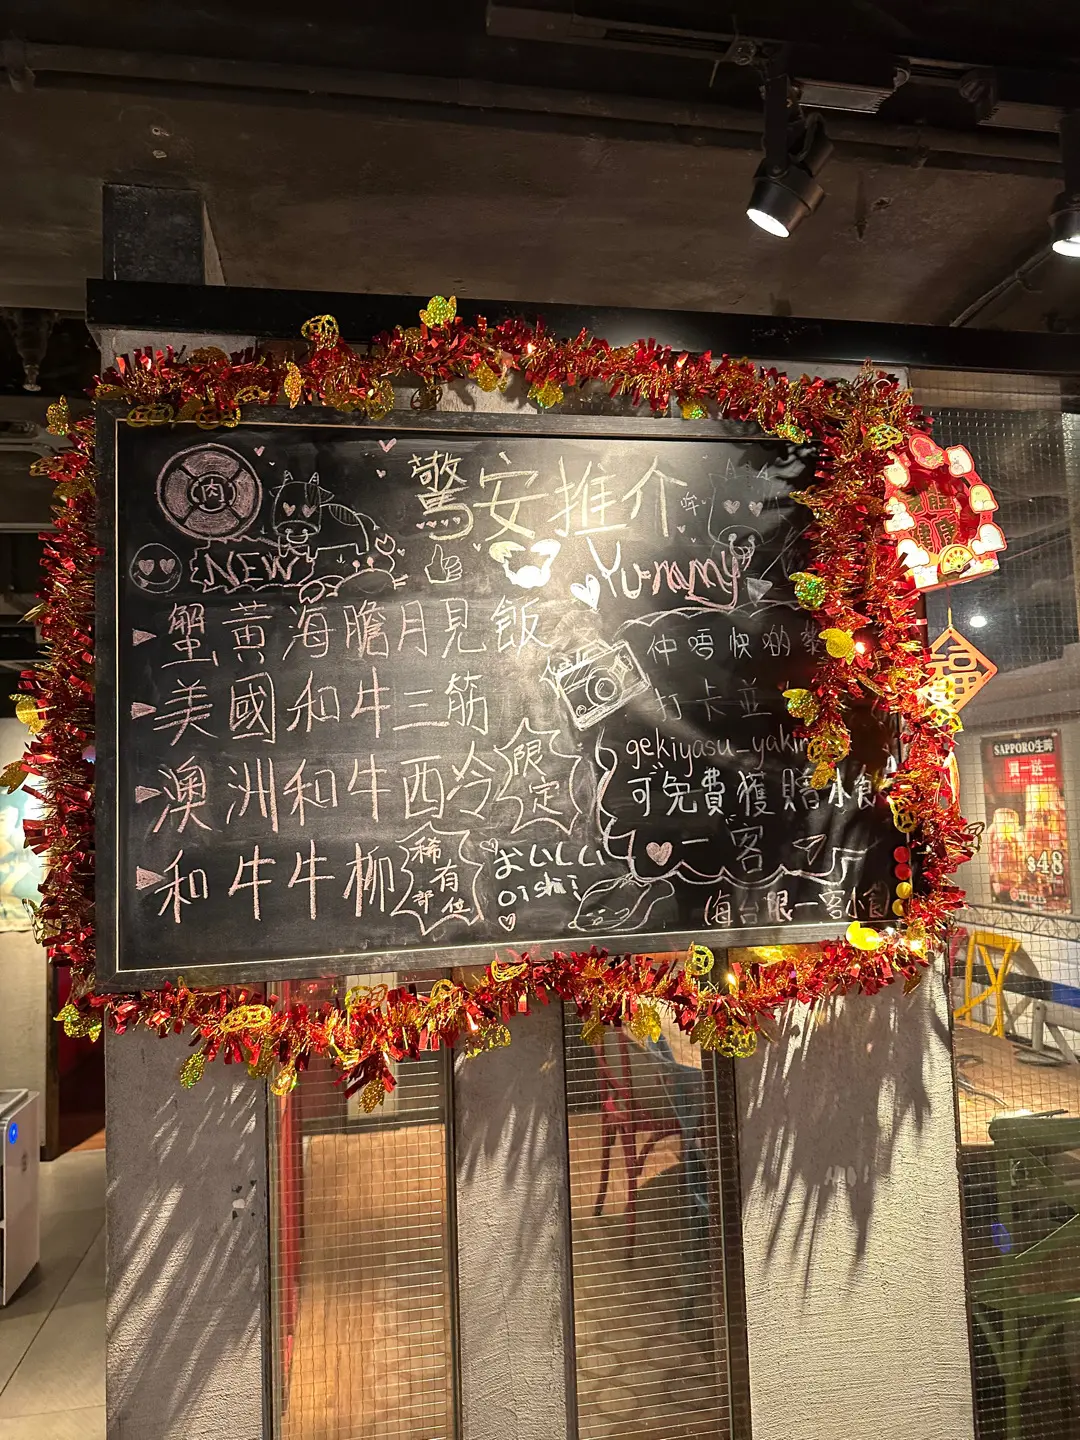 肉
驚安推介
哞
NEW
Yummy
蟹黃海膽月見飯
美國和牛三筋
澳洲和牛西冷
限定
和牛牛柳
稀有部位
おいしい
oishii
仲唔快啲
打卡並
gekiyasu_yakin
可免費獲贈小食
一客
(每台限一客小食
福
SAPPORO生啤
買一送一
$48